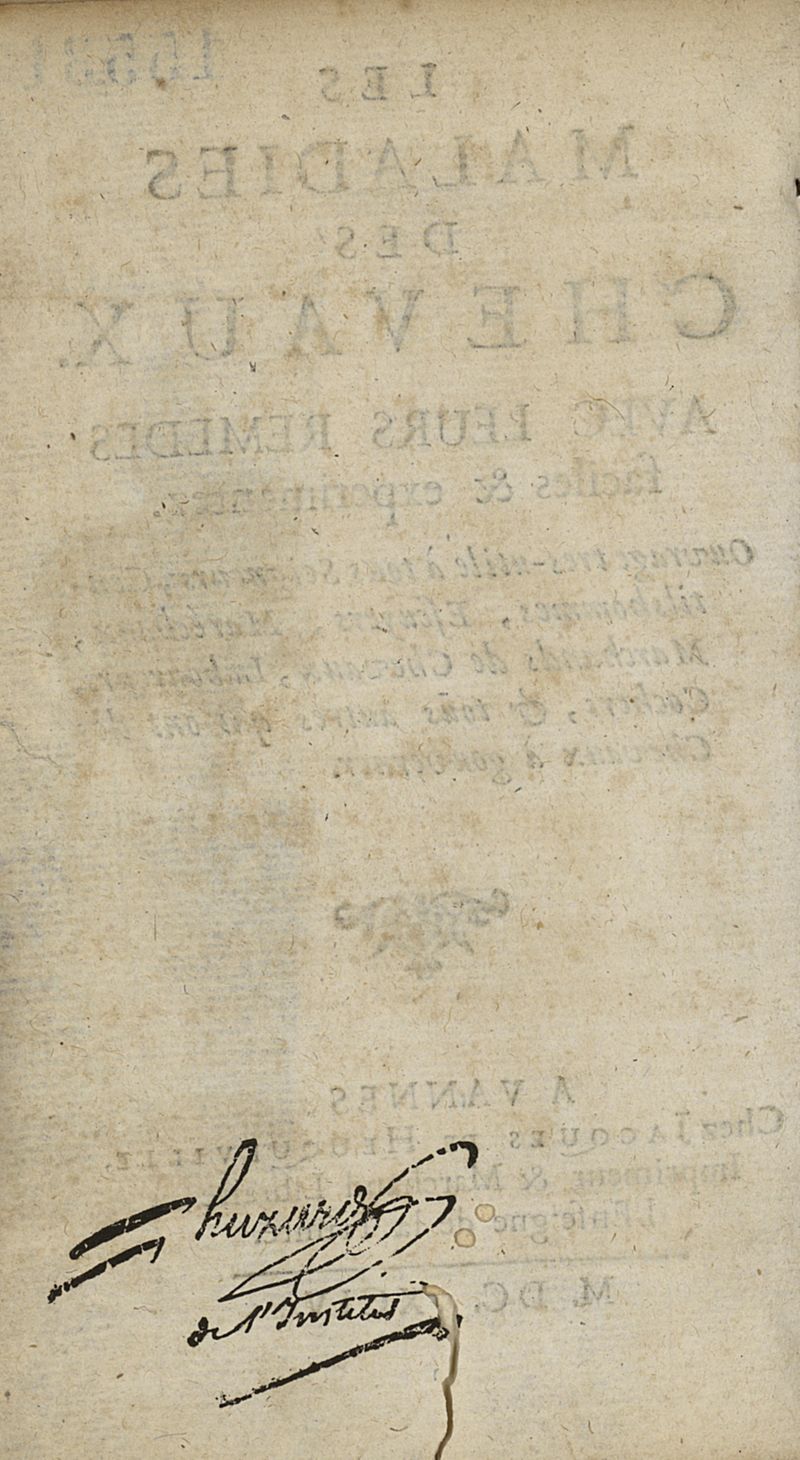 LES
MALADIES
DES
CHEVAUX.
AVEC LEURS REMEDES
faciles & experimentez.
Ouvrage tres-utile à tous Seigneurs, Gen-
tilshommes, Escuyers, Maréchaux,
Marchands de Chevaux,
Cochers, & tous autres qui ont de
Chevaux à gouverner.
A VANNES
Chez JACQUES DE HEUQUEVILLE,
Imprimeur & Marchand
l'Enseigne
M. DC.
huzard
de l'Institut